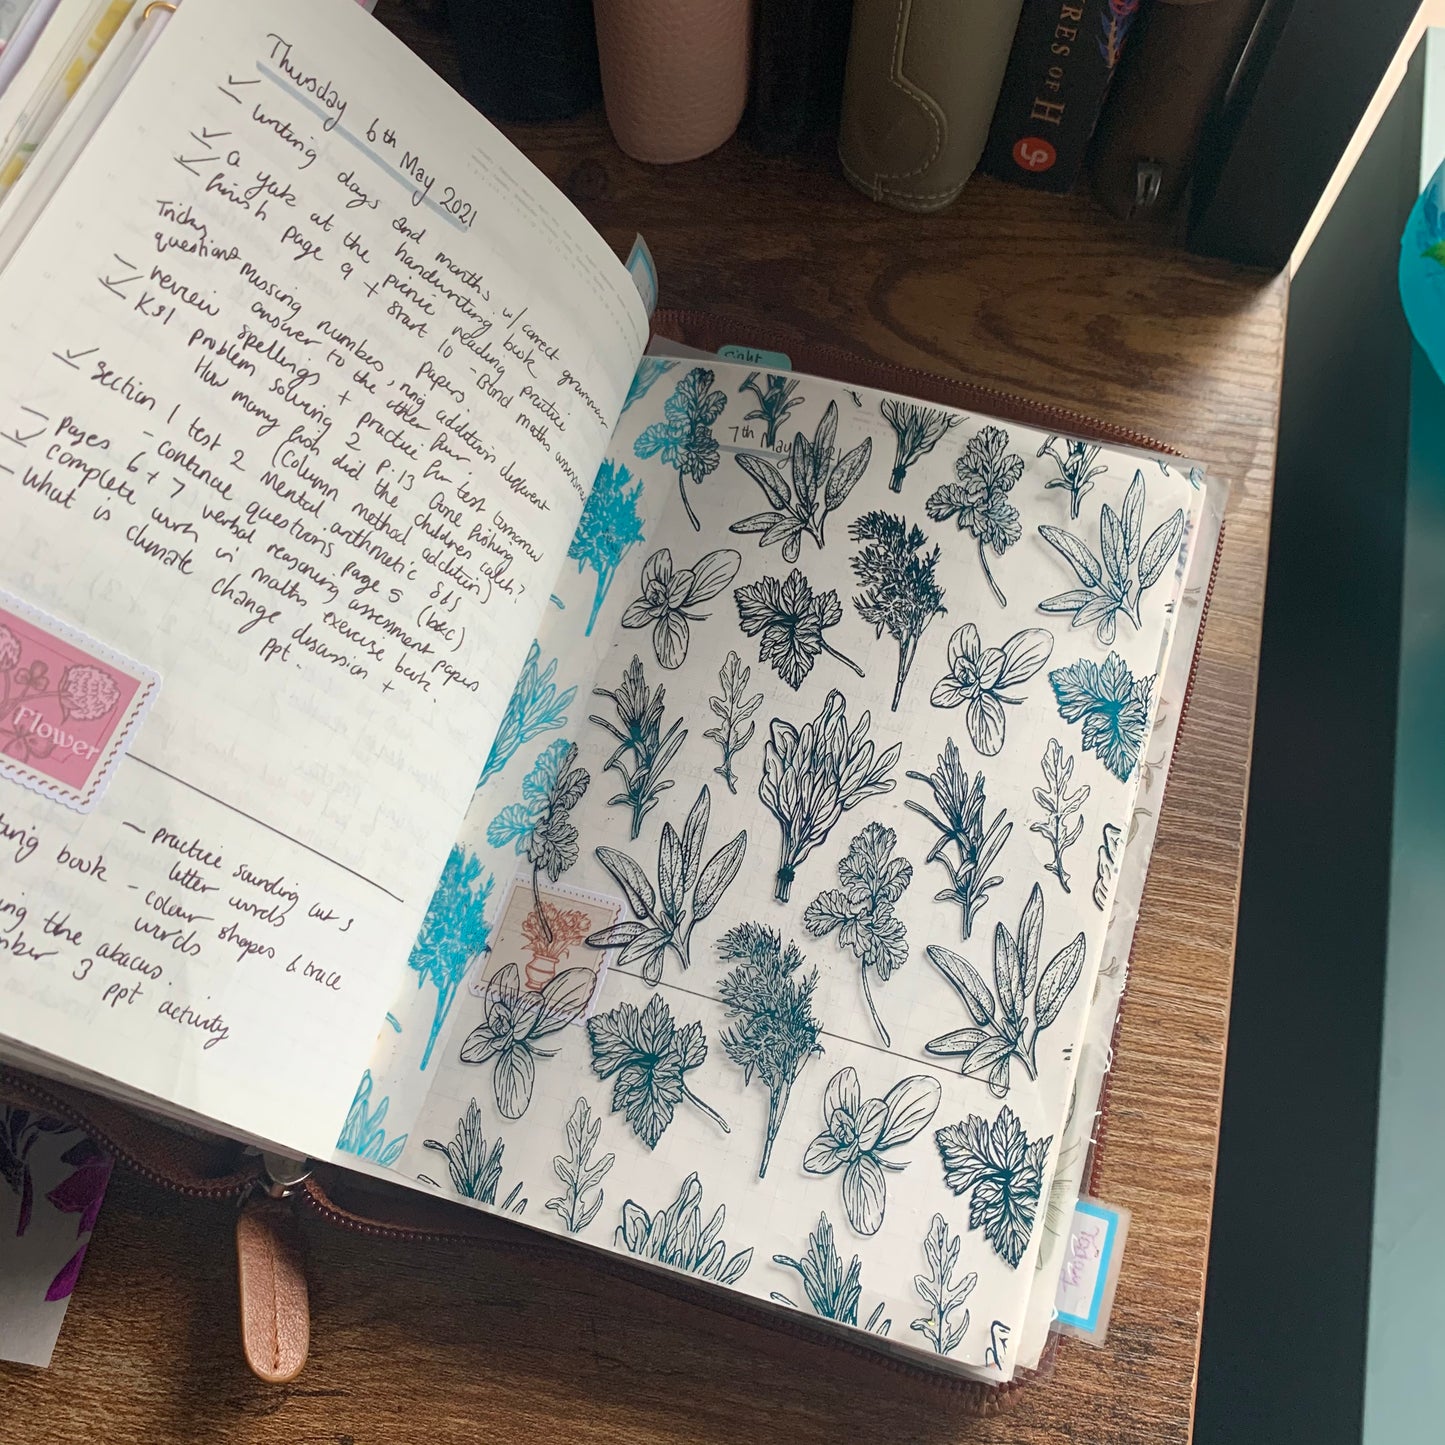 Thursday 6th May 2021
writing days and months w/ correct grammar
a yak at the picnic reading practice
finish page 9 + start 10 - Bond maths
handwriting book
Tricky questions
missing numbers, ring addition different
answer to the other four.
papers
review spellings + practice for test tomorrow
KS1 problem solving 2 P.13 Gone fishing
How many fish did the children catch?
(column method addition)
Section 1 test 2 Mental arithmetic
- continue questions page 5 (b&c)
pages 6 + 7 verbal reasoning assessment papers
complete work in maths exercise book
What is climate change discussion +
ppt.
Flower
book
- practice sounding out 3
letter words
- colour shapes & trace
words
the abacus.
3 ppt activity
7th May
TRES OF H
Today